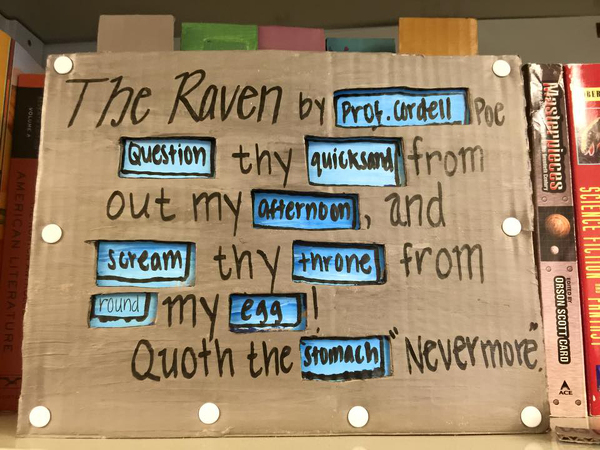 The Raven by Prof. Cordell Poe
Question thy quicksand from
out my afternoon, and
scream thy throne from
round my egg!
Quoth the stomach "Nevermore".
AMERICAN LITERATURE
Masterpieces
EDITED BY
ORSON SCOTT CARD
ACE
SCIENCE FICTION